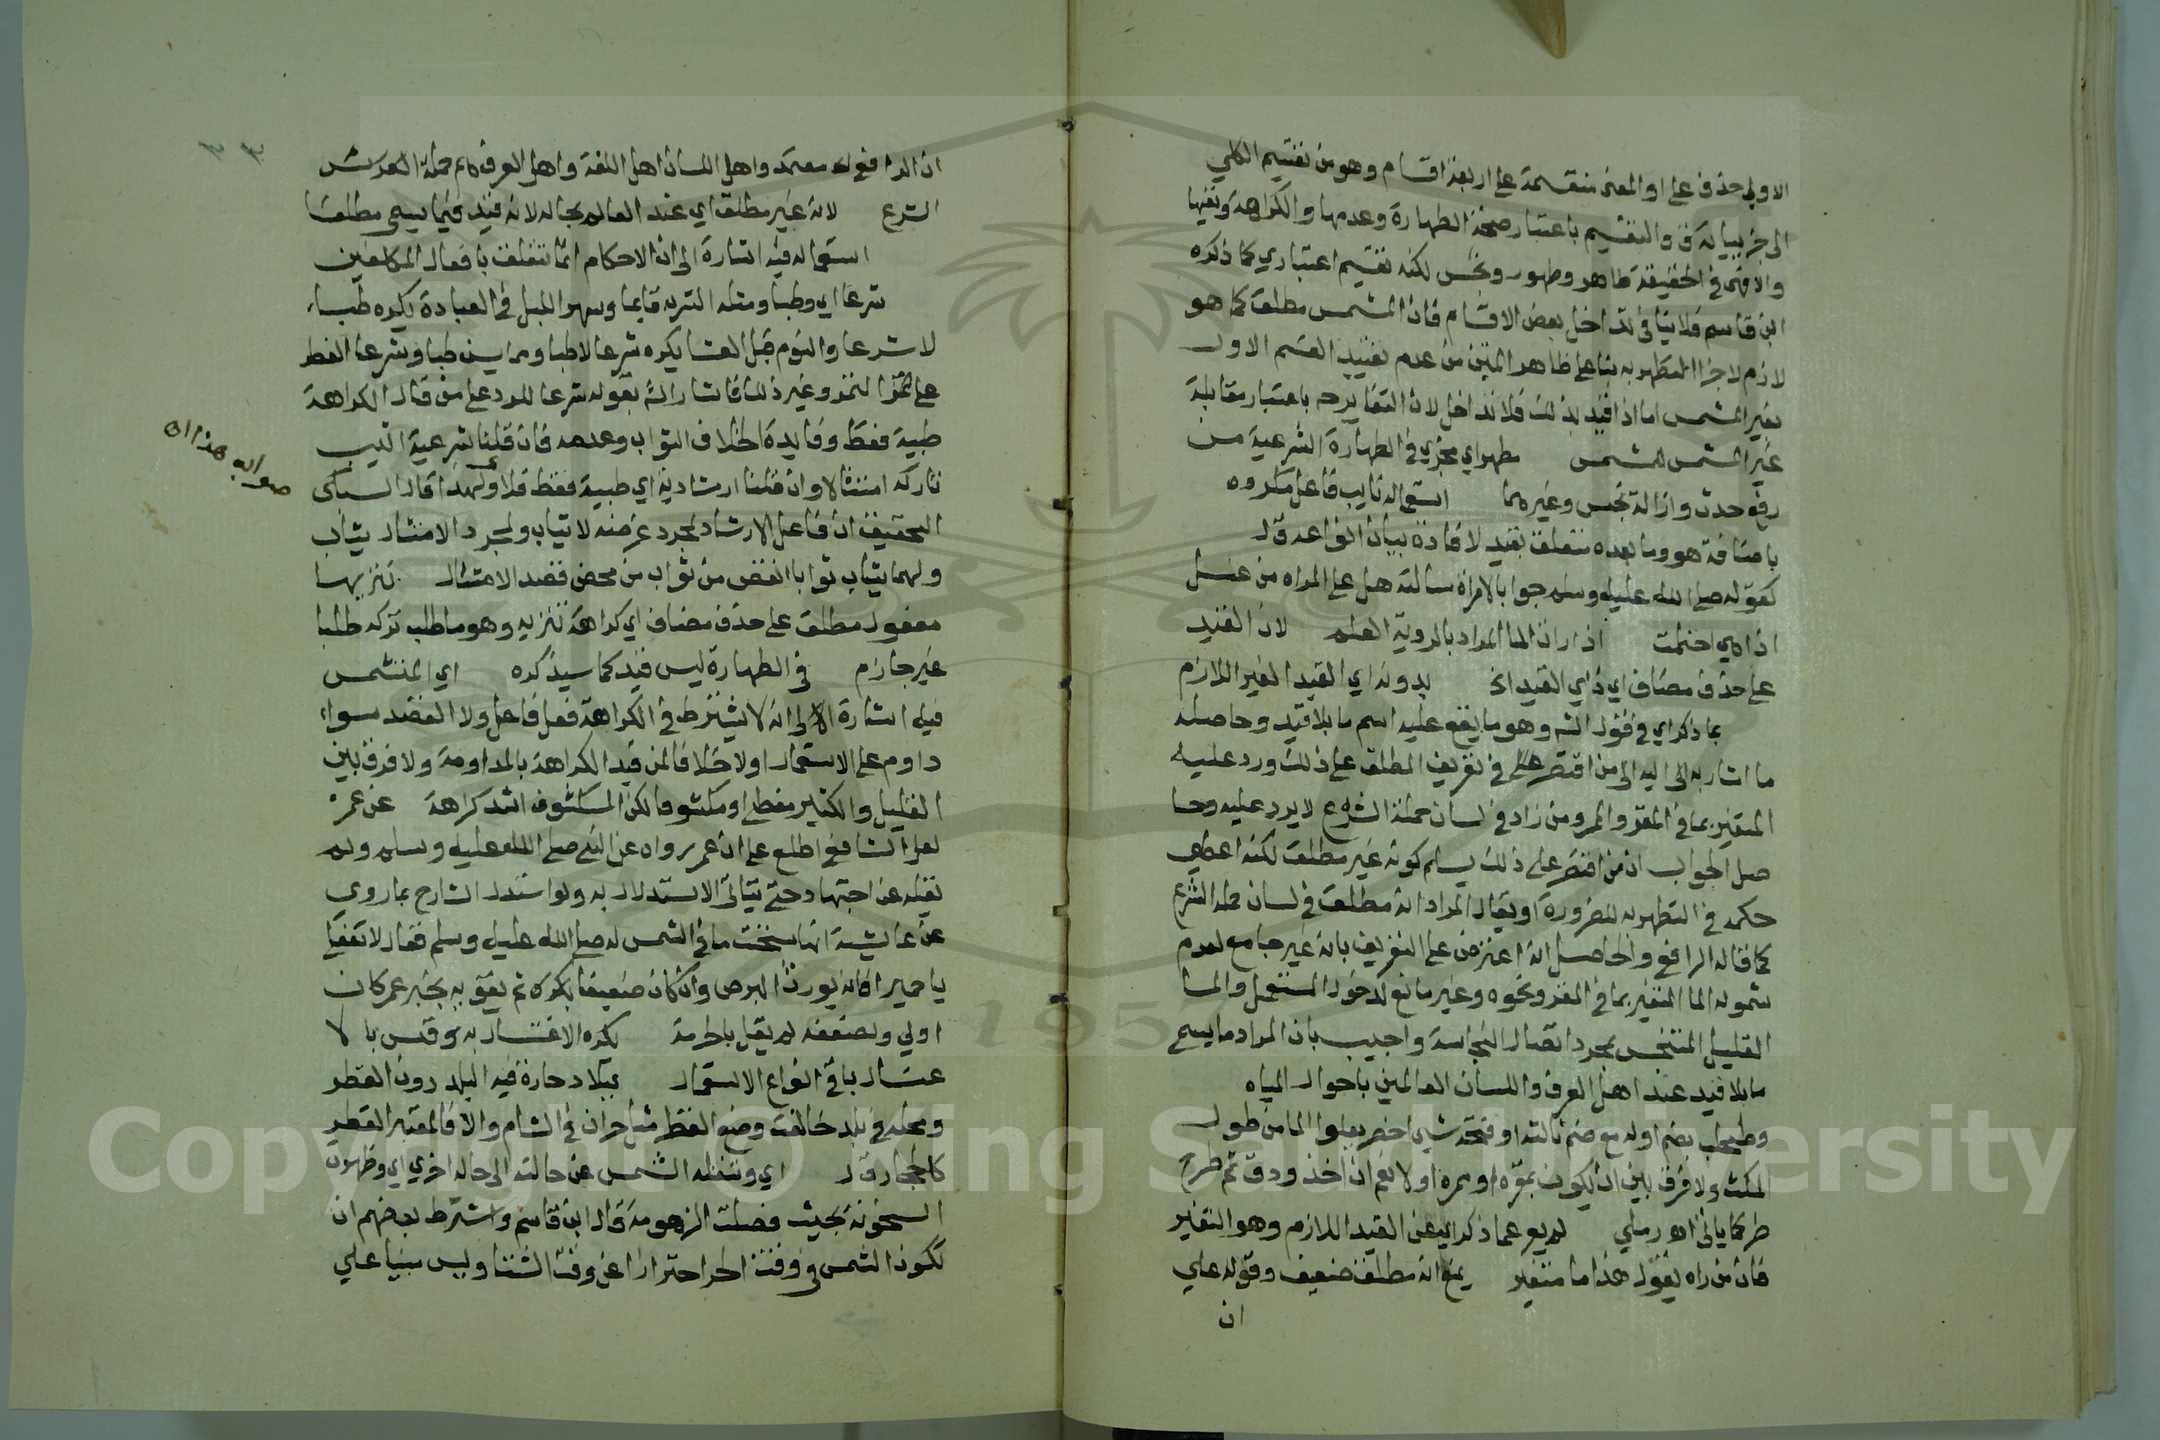 الاولى حذف على او المعنى منقسمة على اربعة اقسام وهو من تقسيم الكلي
الى جزيياته ق والتقسيم باعتبار صحة الطهارة وعدمها والكراهة ونفيها
والا فهي في الحقيقة طاهر وطهور ونجس لكنه تقسيم اعتباري كما ذكره
ابن قاسم فلا ينافي تداخل بعض الاقسام فان المشمس مطلق كما هو
لازم لاجزا التطهر به بنا على ظاهر المتن من عدم تقييد القسم الاول
بغير المشمس اما اذا قيد بذلك فلا تداخل لان التغاير حه باعتبار مقابلة
غير المشمس للمشمس مطهر اي مجزي في الطهارة الشرعية من
رفع حدث وازالة نجس وغيرهما استعماله نايب فاعل مكروه
باضافة هو وما بعده متعلق بقيد لافادة بيان الواعد قال
كقوله صلى الله عليه وسلم جوابا لامراة سالته هل على المراه من غسل
اذا هي احتلمت اذا رات الما المراد بالروية العلم لان القيد
على حذف مضاف اي ذي القيد الخ بدونه اي القيد الغير اللازم
بما ذكر اي في قول الشه وهو ما يقع عليه اسم ما بلا قيد وحاصله
ما اشار به الى اليه الى من اقتصر على في تعريف المطلق على ذلك ورد عليه
المتغير بما في المقر والممر ومن زاد في لسان حملة الشرع لا يرد عليه وحا
صل الجواب ان من اقتصر على ذلك يسلم كونه غير مطلق لكنه اعطي
حكمه في التطهر به للضرورة او يقال المراد انه مطلق في لسان حملة الشرع
كما قاله الرافعي والحاصل انه اعترض على التعريف بانه غير جامع لعدم
شموله الما المتغير بما في المقر ونحوه وغير مانع لدخول المستعمل والما
القليل المتنجس بمجرد اتصال النجاسة واجيب بان المراد ما يسمى
ما بلا قيد عند اهل العرف واللسان العالمين باحوال المياه
وطحلب بضم اوله مع ضم ثالثه او فتحه شي اخضر يعلوا الما من طول
المكث ولا فرق بين ان يكون بمقره او ممره او لا نعم ان اخذ ودق ثم طرح
ضر كما ياتي اهـ رملي لم يعر عما ذكر اي عن القيد اللازم وهو التغير
فان من راه يقول هذا ما متغير يمنع انه مطلق ضعيف وقوله على
ان
ان الرافعي معتمد واهل اللسان اهل اللغة واهل العرف هم حملة
الشرع لانه غير مطلق اي عند العالم بحاله لانه قيد فيما يسمى مطلقا
استعماله فيه اشارة الى ان الاحكام انما تتعلق بافعال المكلفين
شرعا اي وطبا ومثله الشرب قايما وسهر الليل في العبادة يكره طبا
لا شرعا والنوم قبل العشا يكره شرعا لا طبا ومما يسن طبا وشرعا الفطر
على التمر وغير ذلك فاشار اليه بقوله شرعا للرد على من قال الكراهة
طبية فقط وفايدة الخلاف الثواب وعدمه فان قلنا شرعية اثيب
تاركه امتثالا وان قلنا ارشادية اي طبية فقط فلا ولهذا قال السبكي
التحقيق ان فاعل الارشاد لمجرد غرضه لا يثاب ولمجرد الامتثال يثاب
ولهما يثاب ثوابا انقص من ثواب من محض قصد الامتثال تنزيها
مفعول مطلق على حذف مضاف اي كراهة تنزيه وهو ما طلب تركه طلبا
غير جازم في الطهارة ليس قيد كما سيذكره اي المتشمس
فيه اشارة الى انه لا يشترط في الكراهة فعل فاعل ولا القصد سواء
داوم على الاستعمال او لا خلافا لمن قيد الكراهة بالمداومة ولا فرق بين
القليل والكثير مغطى او مكشوفا لكن المكشوف اشد كراهة عن عمر
لعل الشافعي اطلع على ان عمر رواه عن النبي صلى الله عليه وسلم ولم
يقله عن اجتهاد حتى يتاتى الاستدلال به ولو استدل الشارح بما روي
عن عايشة انها سخنت ما في الشمس له صلى الله عليه وسلم فقال لا تفعلي
يا حميرا فانه يورث البرص وان كان ضعيفا لكنه تم يقوى به بخبر عمر كان
اولى ولضعفه لم يقل بالحرمة يكره الاغتسال به وقس بالا
غتسال باقي انواع الاستعمال ببلاد حارة فيه البلد دون القطر
ومحله في بلد خالفت وضع القطر مثل حران في الشام والا فالمعتبر القطر
كالحجاز ق ل اي وتنقله الشمس عن حالته الى حالة اخرى اي وظهرت
السخونة بحيث فصلت الزهومة قال ابن قاسم واشترط بعضهم ان
تكون الشمس في وقت الحر احترازا عن وقت الشتا وليس مبنيا على
صوابه هذا ان
Copyright © King Saud University
1957